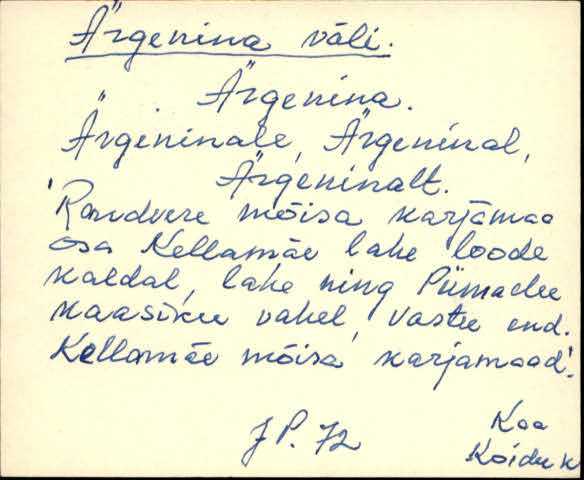 Ärgenina väli.
Ärgenina.
Ärgeninale, Ärgeninal,
Ärgeninalt.
'Randvere mõisa karjamaa
osa Kellamäe lahe loode
kaldal, lahe ning
kaasiku vahel, vastu end.
Kellamäe mõisa karjamaad'.
J P. 72
Kaa
Koidu k